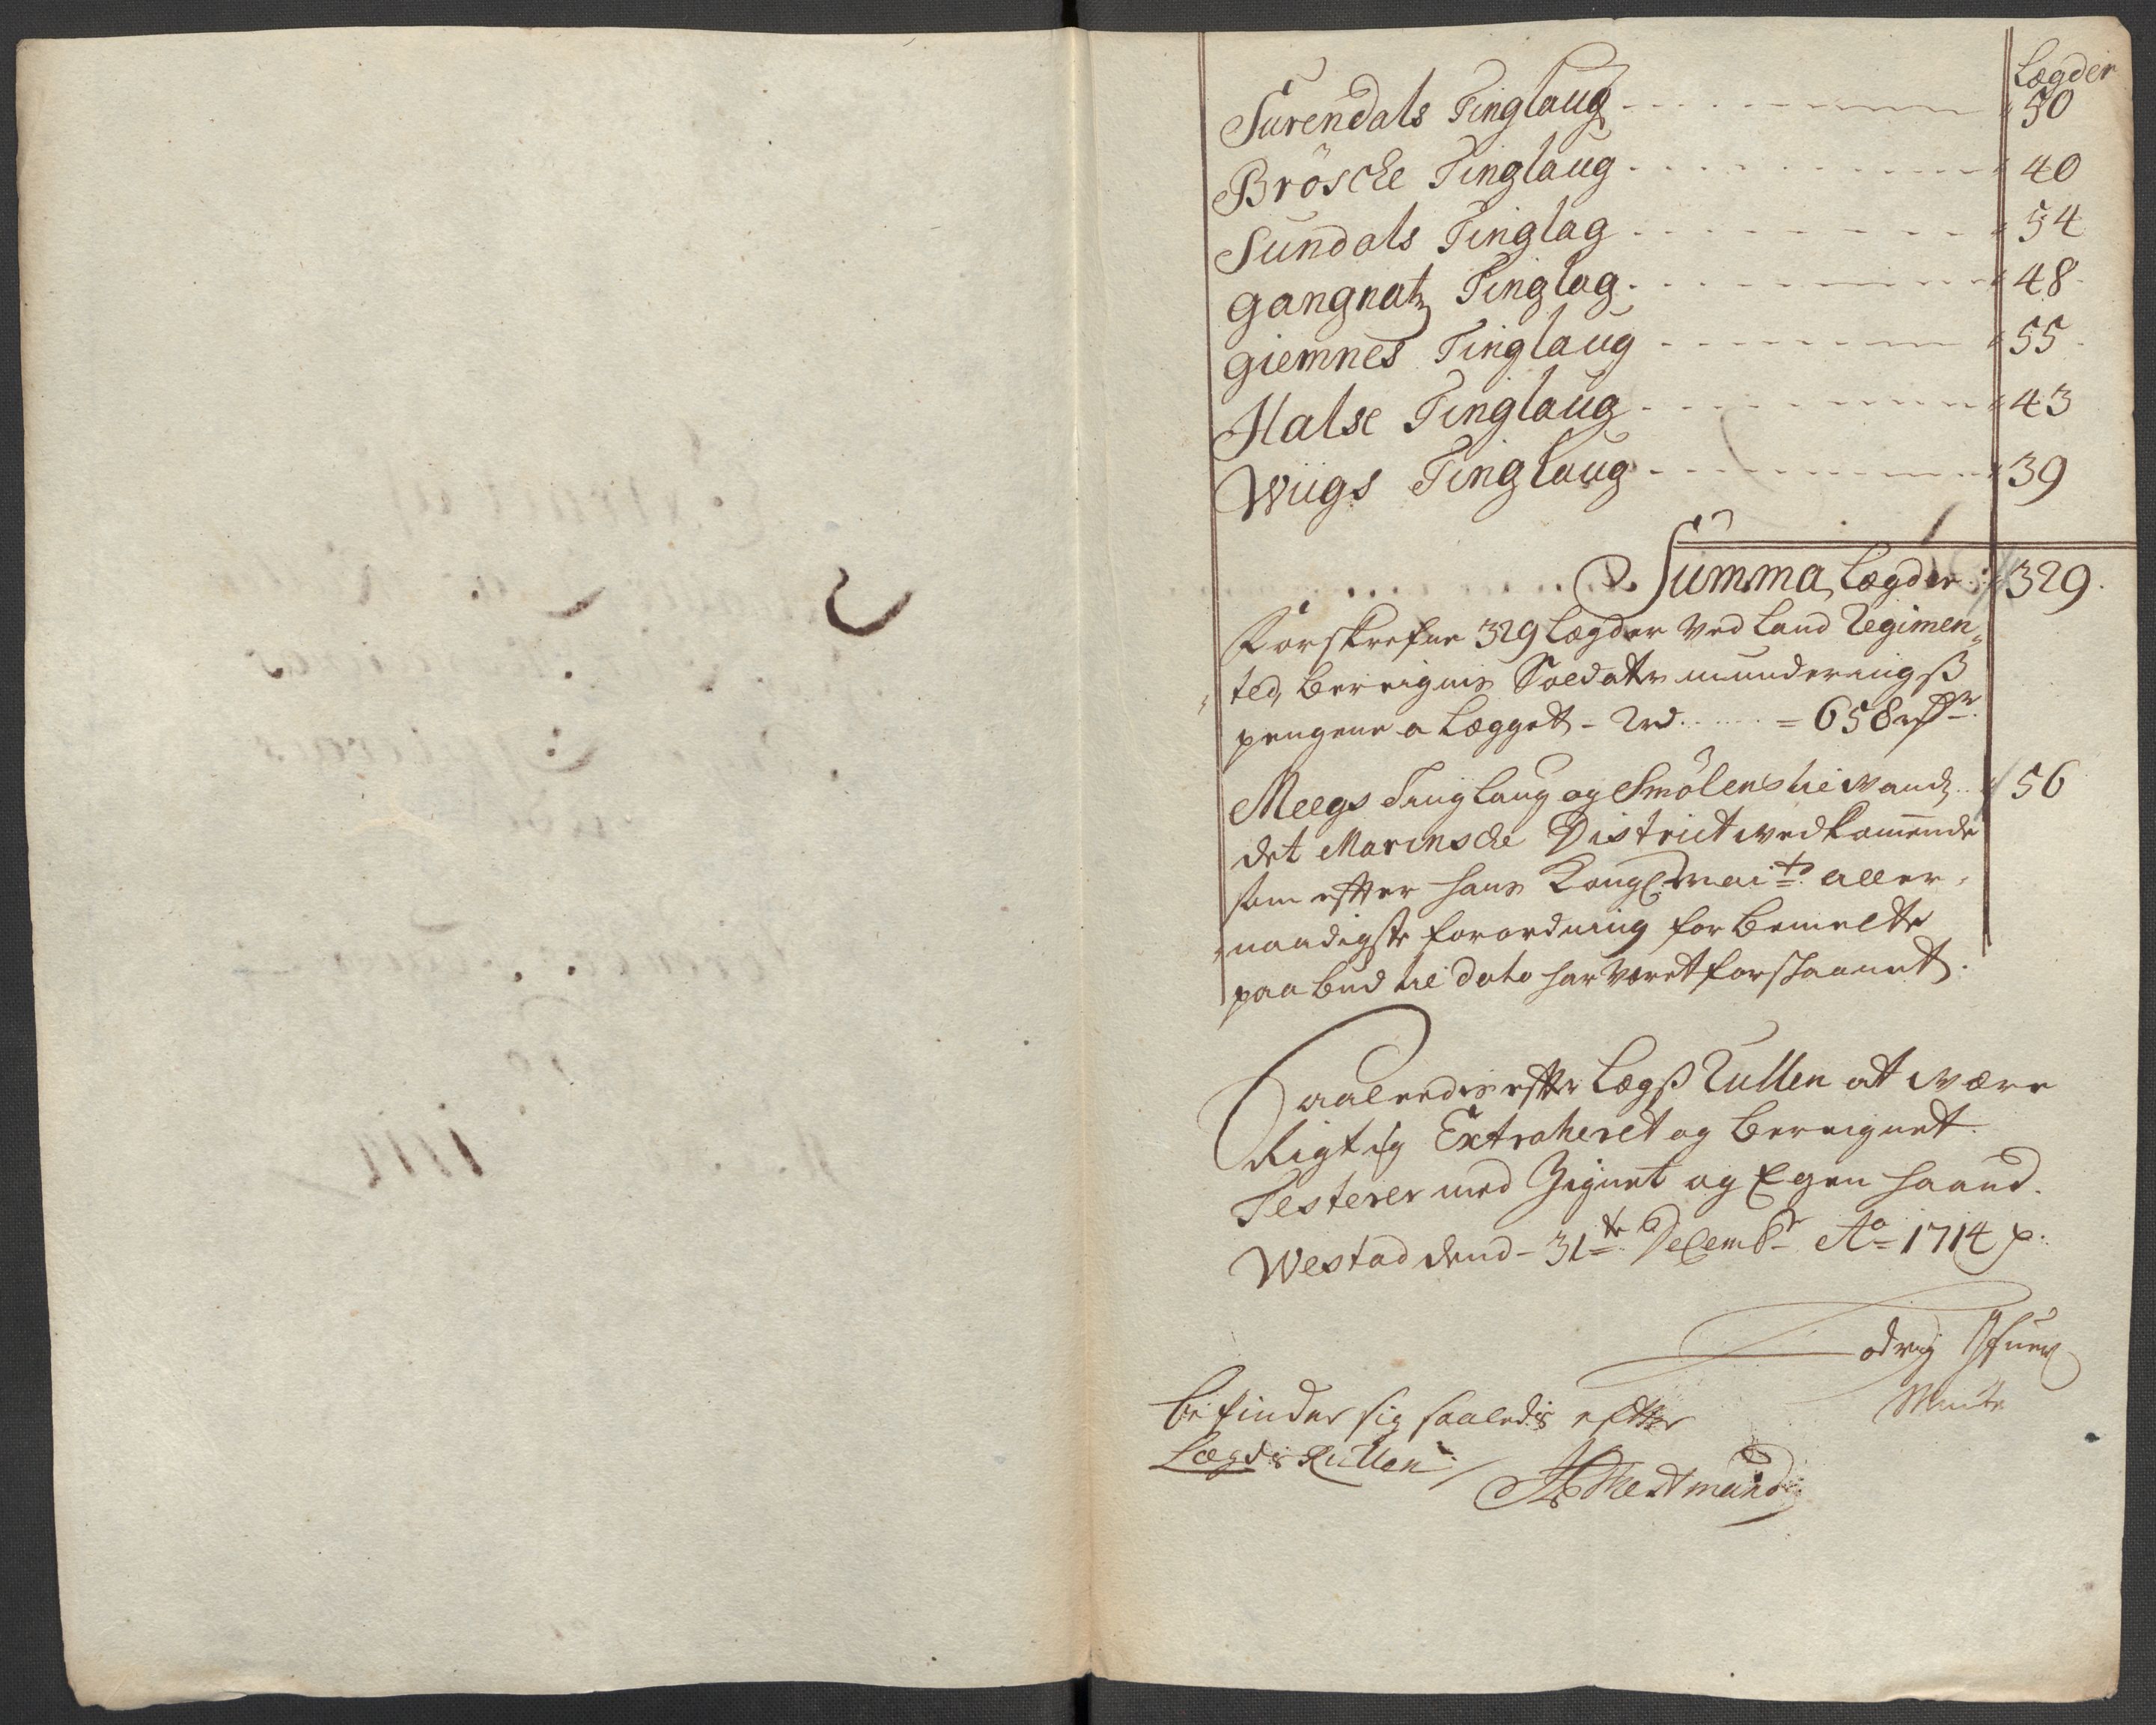 Lægder
Surendals Tinglaug 50
Brösche Tinglaug 40
Sundals Tinglag 54
Gangnatz Tinglag 48
Giemnes Tinglaug 55
Halse Tinglaug 43
Wiigs Tinglaug 39
Summa Lægder 329
Forskrefne 329 Lægder ved Land Regimen-
ted, bereignis Soldater munderingß
pengene a Lægget - 2rd = 658 rdr
Meegs Tinglaug og Smölens tilvand 56
det Marinsche District vedkommende
som efter hans Kongl Mai:ts aller-
naadigste forordning for bemelte
paabud til dato har været forskaanet.
Saaledis efter Lægß Rullen at være
Rigtig Extraheret og bereignet.
Testerer med Zignet og Egen haand.
Westad dend 31te Decembr Ao 1714
befindes sig saaledis efter
Lægds Rullen